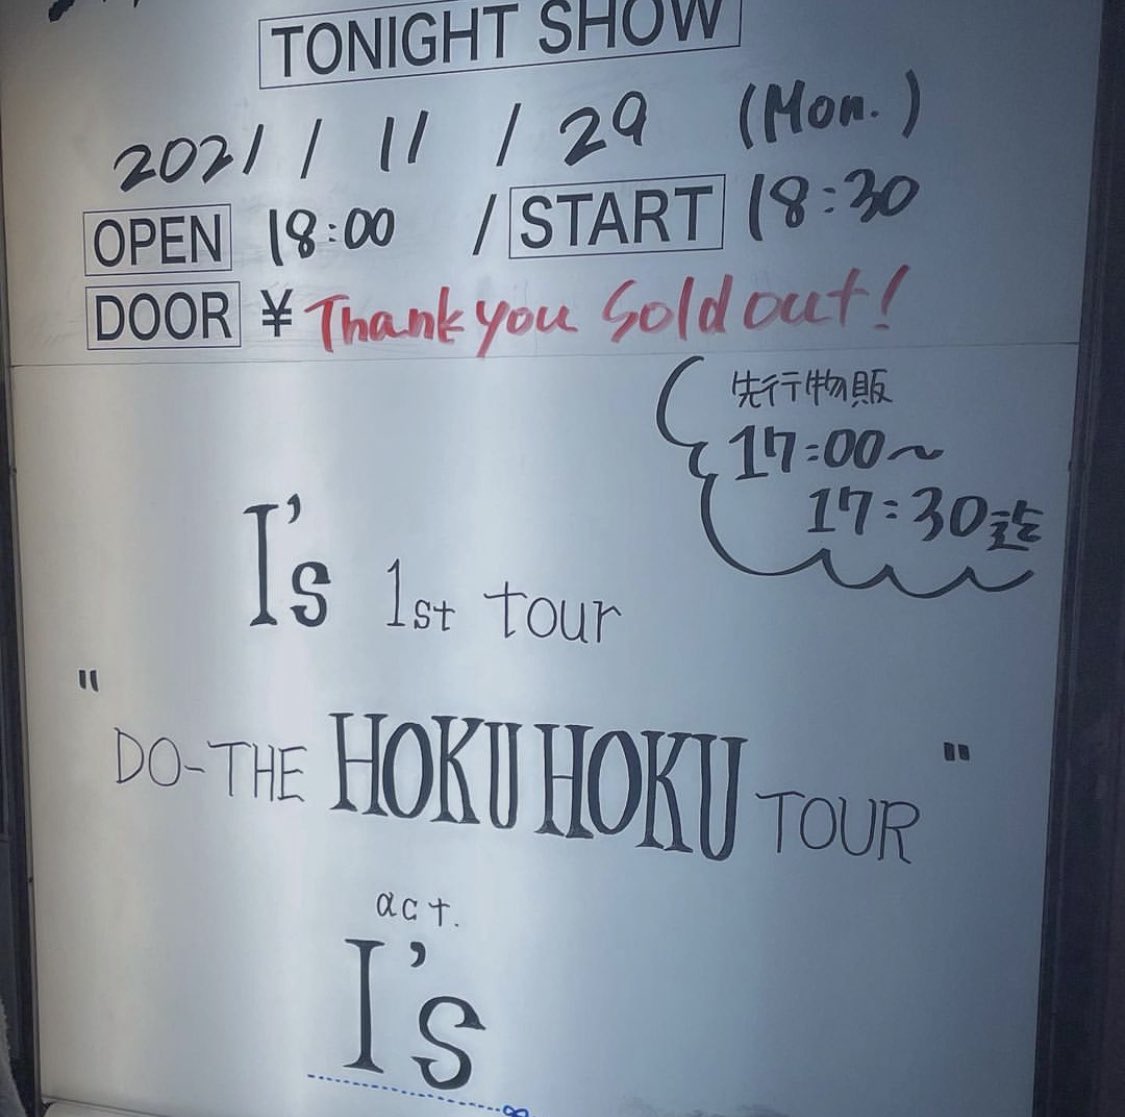 TONIGHT SHOW
2021 / 11 / 29 (Mon.)
OPEN 18:00 / START 18:30
DOOR ¥ Thank you Sold out!
先行物販
17:00〜
17:30迄
I's 1st tour
"DO-THE HOKU HOKU TOUR"
act.
I's